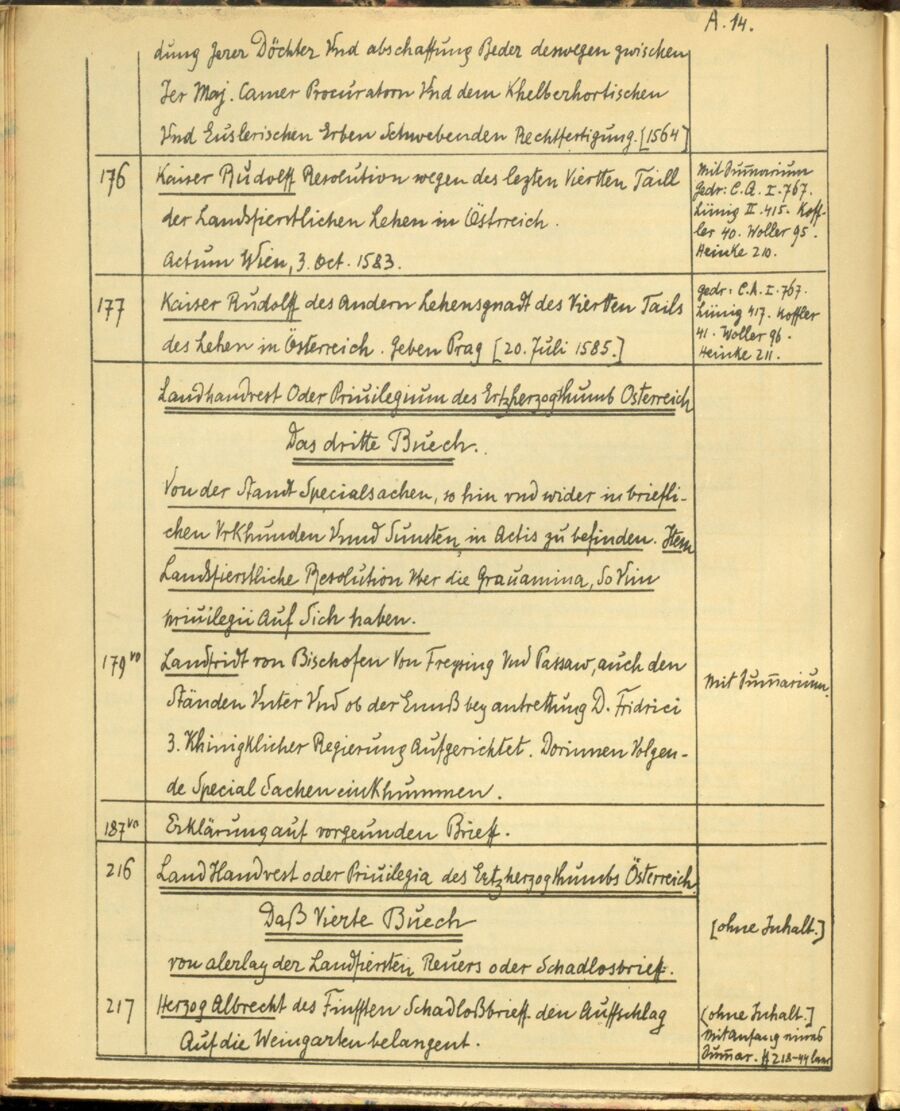 A. 14.
dung Jerer Döchter Vnd abschaffung Beder deswegen zwischen
Jer Maj. Camer Procuratorn Vnd dem Khelberhortischen
Vnd Euslerischen Erben Schwebenden Rechtfertigung. [1564]
176 Kaiser Rudolff Resolution wegen des lezten Viertten Taill
der Landsfierstlichen Lehen in Östrreich.
Actum Wien, 3. Oct. 1583.
mit Sum̄arium
Gedr: C. A. I. 767.
Lünig II. 415. Koff-
ler 40. Woller 95.
Heinke 210.
177 Kaiser Rudolff des Andern Lehensgnadt des Viertten Tails
des Lehen in Österreich. Geben Prag [20. Juli 1585.]
gedr: C. A. I. 767.
Lünig 417. Koffler
41. Woller 96.
Heinke 211.
Landhandvest Oder Priuilegium des Ertzherzogthumbs Österreich
Das dritte Buech.
Von der Standt Specialsachen, so hin vnd wider in briefli-
chen Vrkhunden Vnnd Sunsten in Actis zu befinden. Item
Landsfierstliche Resolution Vber die Grauamina, So Vim
priuilegii Auf Sich haben.
179vo Landfridt von Bischofen Von Freysing Vnd Passaw, auch den
Ständen Vnter Vnd ob der Ennß bey antrettung D. Fridrici
3. Khinigklicher Regierung Aufgerichtet. Dorinnen Volgen-
de Special Sachen einkhummen.
mit Sum̄arium.
187vo Erklärung auf vorgeunden Brieff.
216 Land Handvest oder Priuilegia des Ertzherzogthumbs Österreich
Daß Vierte Buech
von alerlay der Landfiersten Reuers oder Schadlosbrieff.
[ohne Inhalt.]
217 Herzog Albrecht des Finfften Schadloßbrieff den Auffschlag
Auf die Weingarten belangent.
(ohne Inhalt.]
mit Anfang eines
Sum̄ar. ff 218-44 leer